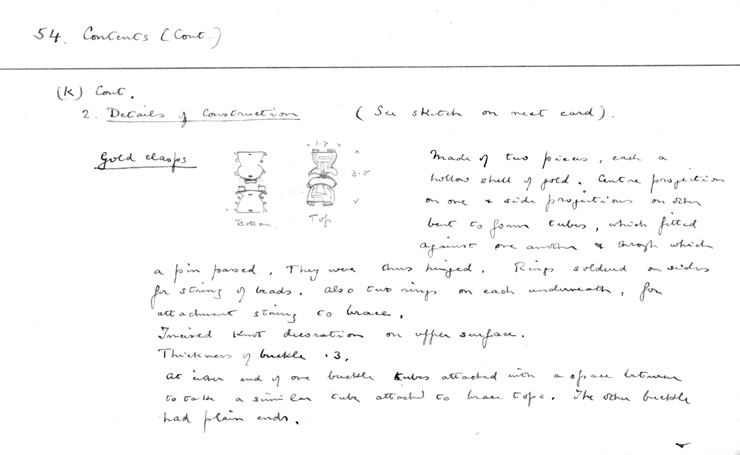 54. Contents (Cont.)
(K) Cont.
2. Details of Construction (See sketch on next card).
Gold clasps
1.7
3.5
Bottom
Top
Made of two pieces, each a
hollow shell of gold. Centre projection
on one & side projections on other
bent to form tubes, which fitted
against one another & through which
a pin passed. They were thus hinged. Rings soldered on sides
for string of beads. Also two rings on each underneath, for
attachment string to brace.
Incised knot decoration on upper surface.
Thickness of buckle .3.
At inner end of one buckle tubes attached with a space between
to take a similar tube attached to brace tops. The other buckle
had plain ends.